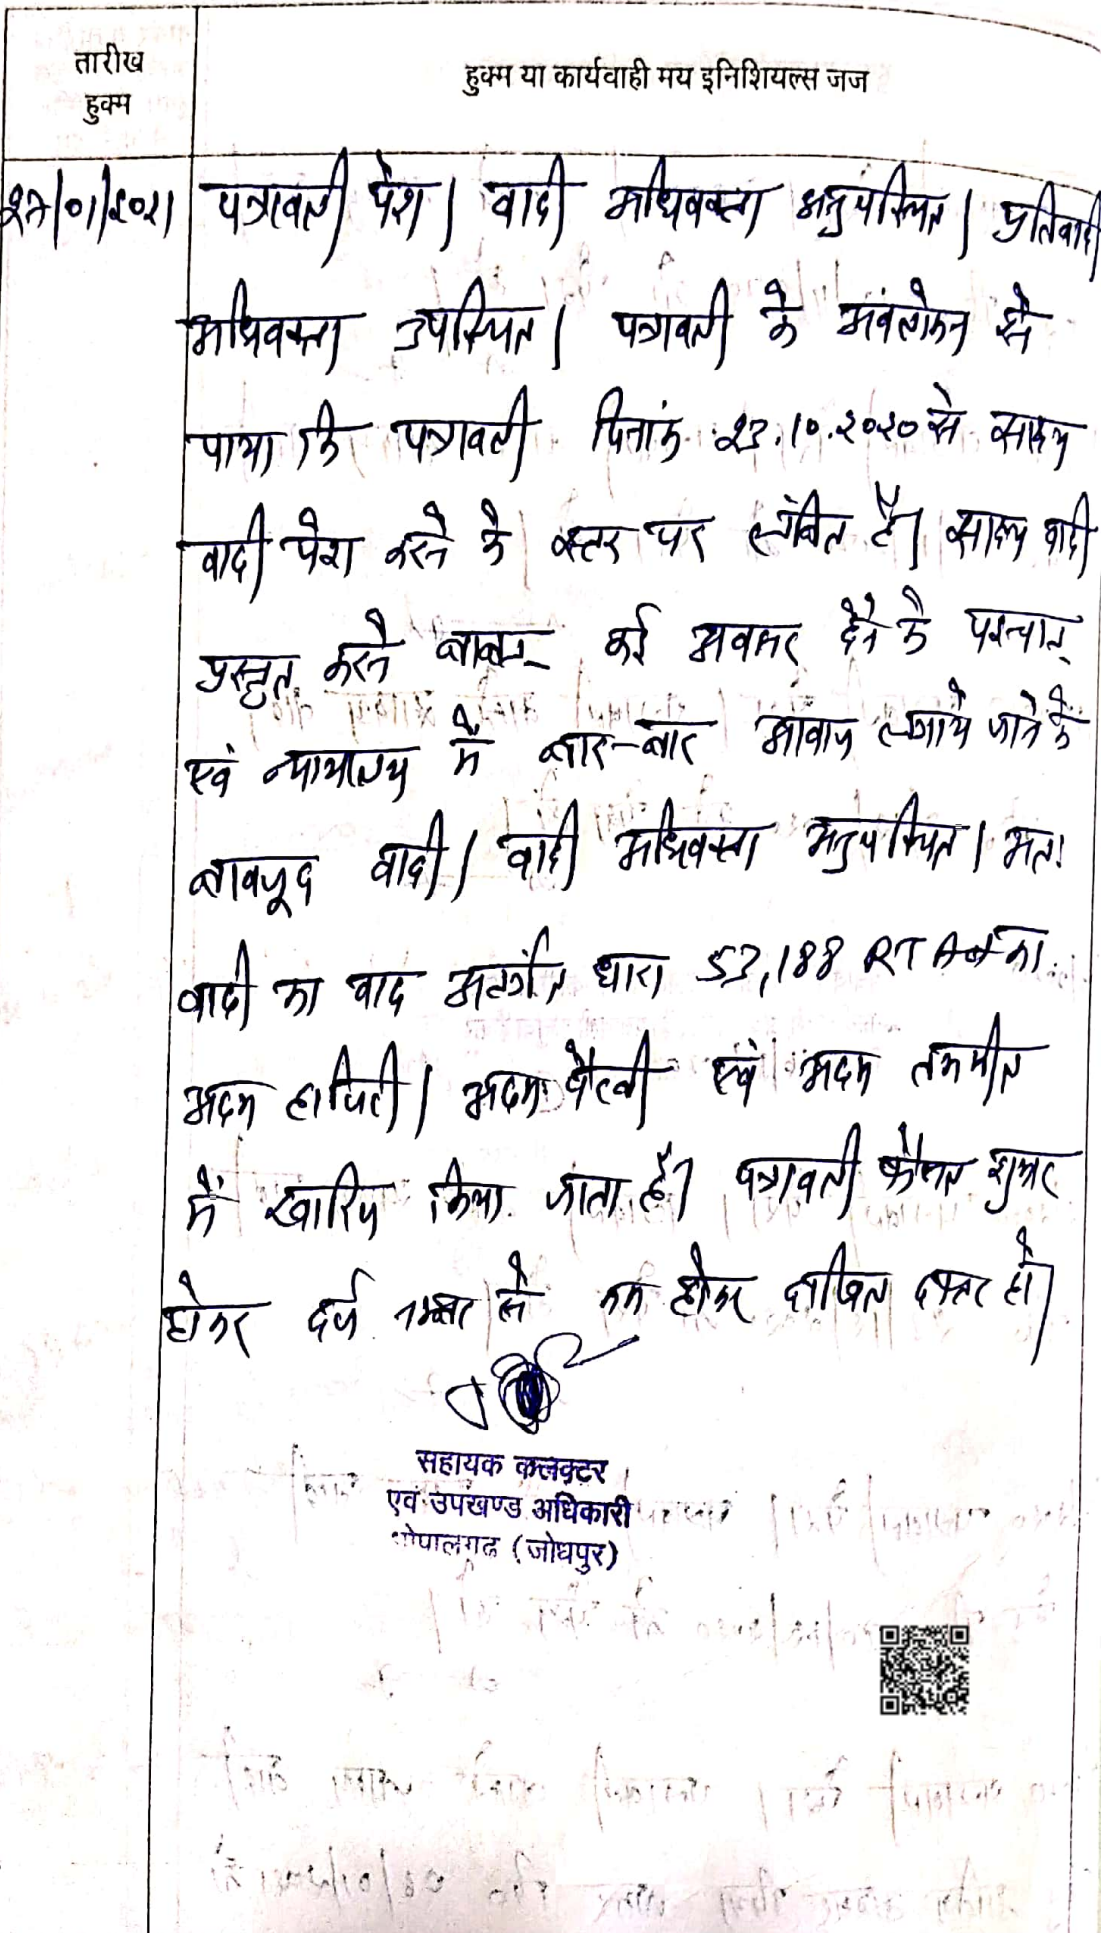 तारीख
हुक्म
हुक्म या कार्यवाही मय इनिशियल्स जज
पत्रावली पेश। वादी अधिवक्ता अनुपस्थित। प्रतिवादी
अधिवक्ता उपस्थित। पत्रावली के अवलोकन से
पाया कि पत्रावली दिनांक 23.10.2020 से साक्ष्य
वादी पेश करने के स्तर पर लंबित है। साक्ष्य वादी
प्रस्तुत करने बाबत कई अवसर देने के पश्चात्
एवं न्यायालय में बार-बार आवाज लगाये जाने के
बावजूद वादी/वादी अधिवक्ता अनुपस्थित। अतः
वादी का वाद अन्तर्गत धारा 53,188 RT Act का
अदम हाजिरी/अदम पैरवी एवं अदम तकमील
में खारिज किया जाता है। पत्रावली फैसल शुमार
होकर दर्ज नम्बर से कम होकर दाखिल दफ्तर हो।
सहायक कलक्टर
एवं उपखण्ड अधिकारी
भोपालगढ (जोधपुर)